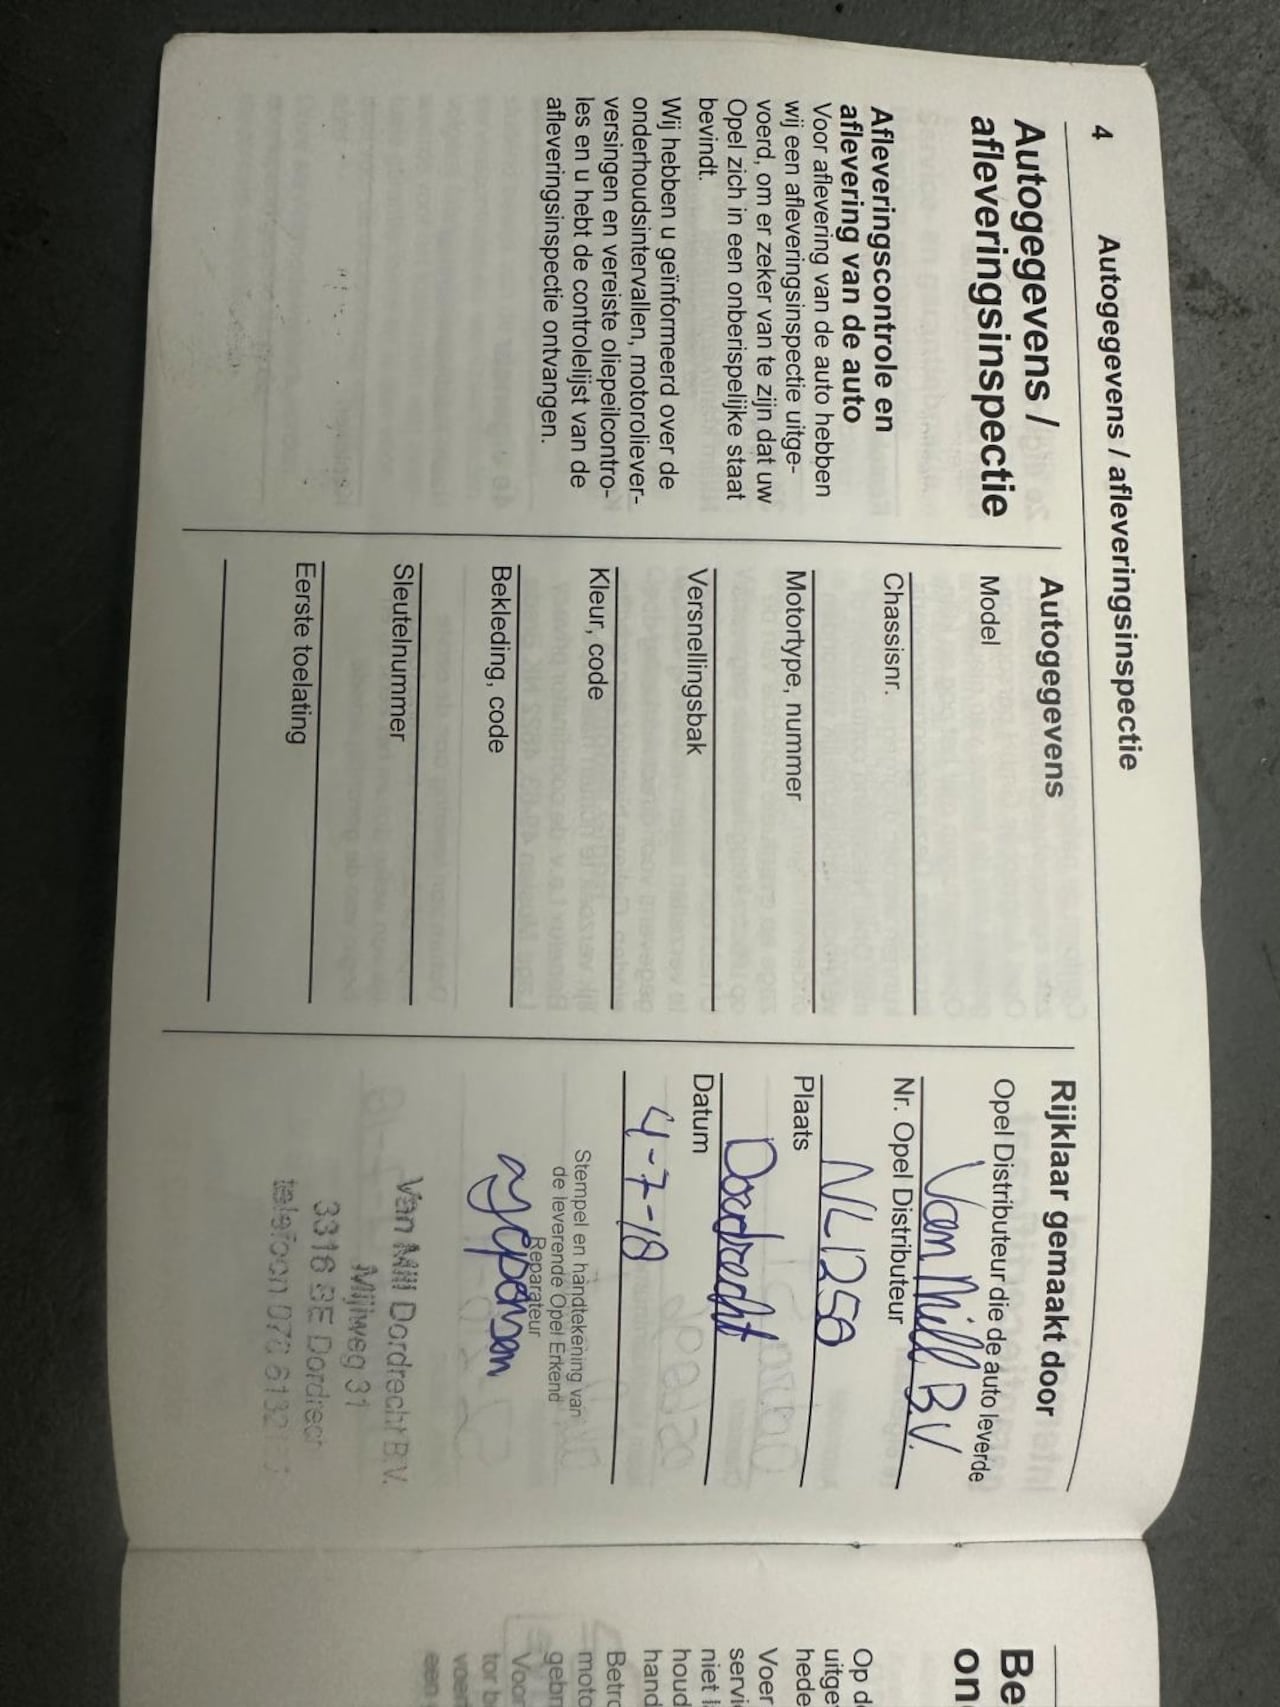 4
Autogegevens / afleveringsinspectie
Autogegevens /
afleveringsinspectie
Afleveringscontrole en
aflevering van de auto
Voor aflevering van de auto hebben
wij een afleveringsinspectie uitge-
voerd, om er zeker van te zijn dat uw
Opel zich in een onberispelijke staat
bevindt.
Wij hebben u geïnformeerd over de
onderhoudsintervallen, motoroliever-
versingen en vereiste oliepeilcontro-
les en u hebt de controlelijst van de
afleveringsinspectie ontvangen.
Autogegevens
Model
Chassisnr.
Motortype, nummer
Versnellingsbak
Kleur, code
Bekleding, code
Sleutelnummer
Eerste toelating
Rijklaar gemaakt door
Opel Distributeur die de auto leverde
Van Mill B.V.
Nr. Opel Distributeur
NL1250
Plaats
Dordrecht
Datum
4-7-18
Stempel en handtekening van
de leverende Opel Erkend
Reparateur
Van Mill Dordrecht B.V.
Mijlweg 31
3316 BE Dordrecht
telefoon 078 6132
Be
on
Op d
uitge
hede
Voer
servi
niet l
houd
hand
Betro
moto
gebr
Voor
tor b
voer
een